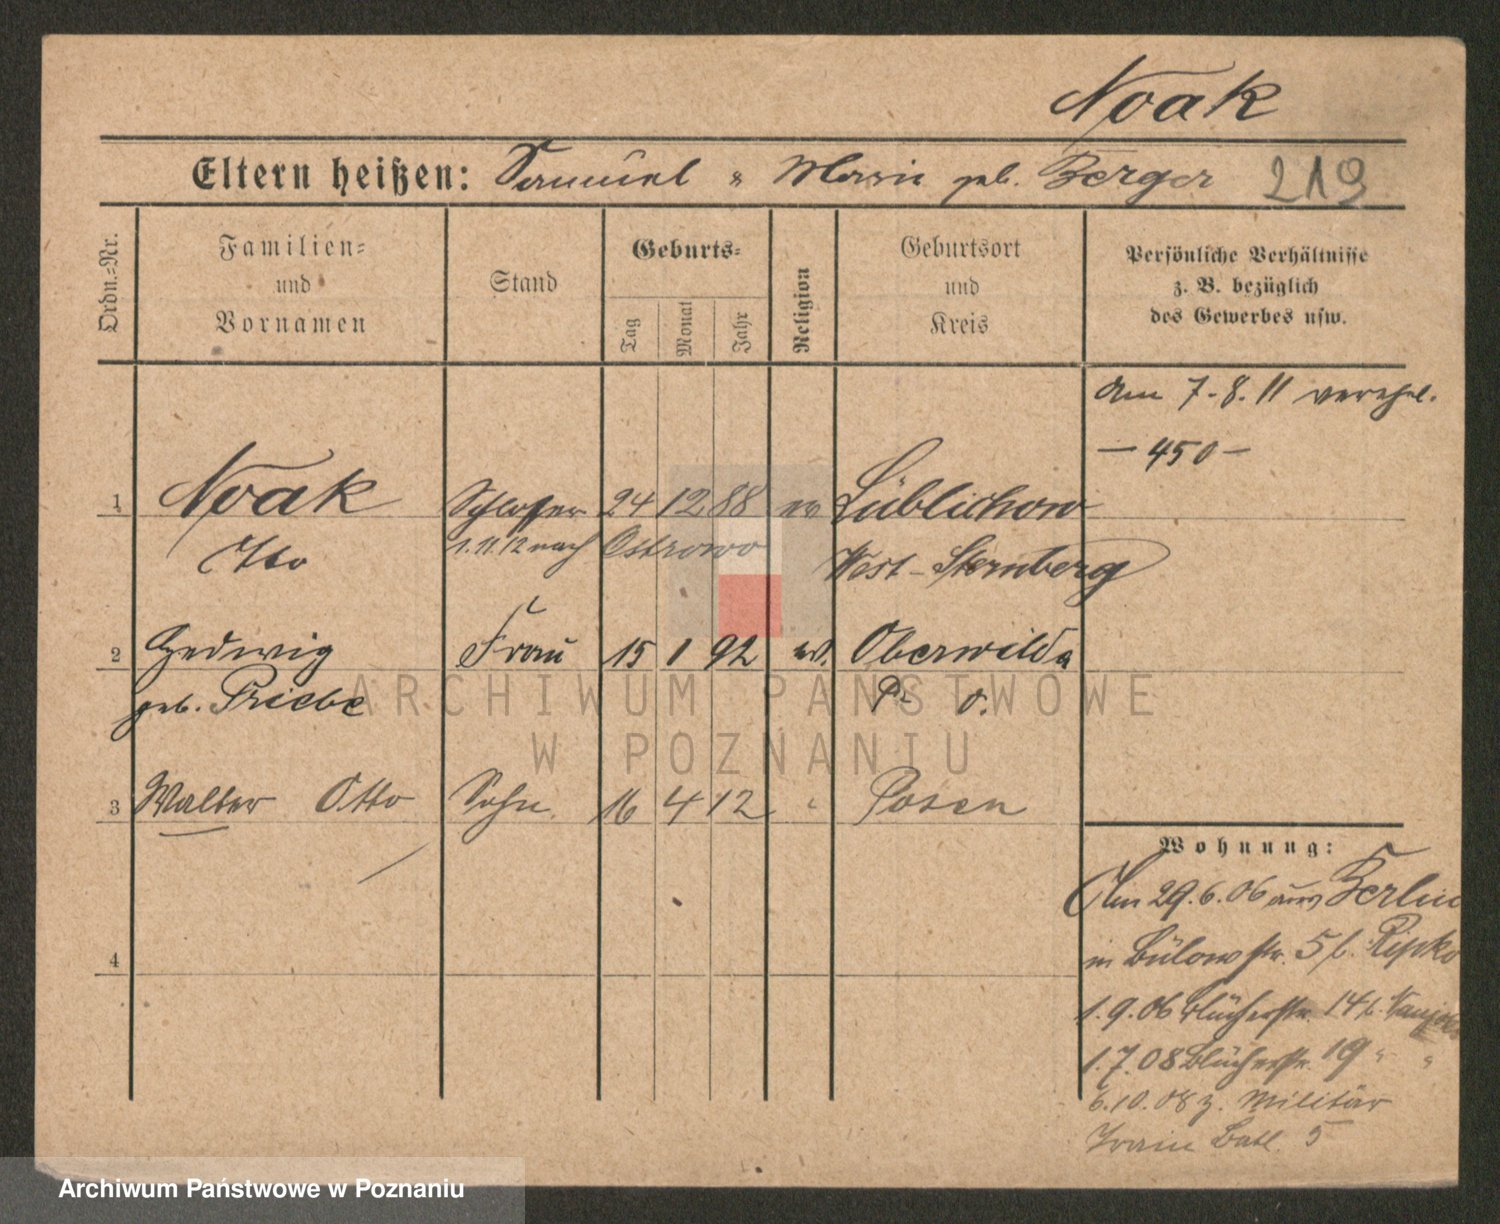 Noak
Eltern heißen: Samuel u Marie geb. Berger 219
Ordn.-Nr.
Familien-
und
Vornamen
Stand
Geburts-
Tag
Monat
Jahr
Religion
Geburtsort
und
Kreis
Persönliche Verhältnisse
z. B. bezüglich
des Gewerbes usw.
am 7.8.11 verehel.
— 450 —
1 Noak Schlosser 24 12 88 ev Lüblichow
Otto 1.11.12 nach Ostrowo West-Sternberg
2 Hedwig Frau 15 1 92 ev. Oberwilda
geb. Priebe P. O.
3 Walter Otto Sohn 16 4 12 " Posen
4
Wohnung:
Am 29.6.06 aus Berlin
in Bülowstr. 5 b. Ripko
1.9.06 Blücherstr. 14 b.
1.7.08 Blücherstr. 19 " "
6.10.08 z. Militär
Train Batl. 5
ARCHIWUM PAŃSTWOWE
W POZNANIU
Archiwum Państwowe w Poznaniu